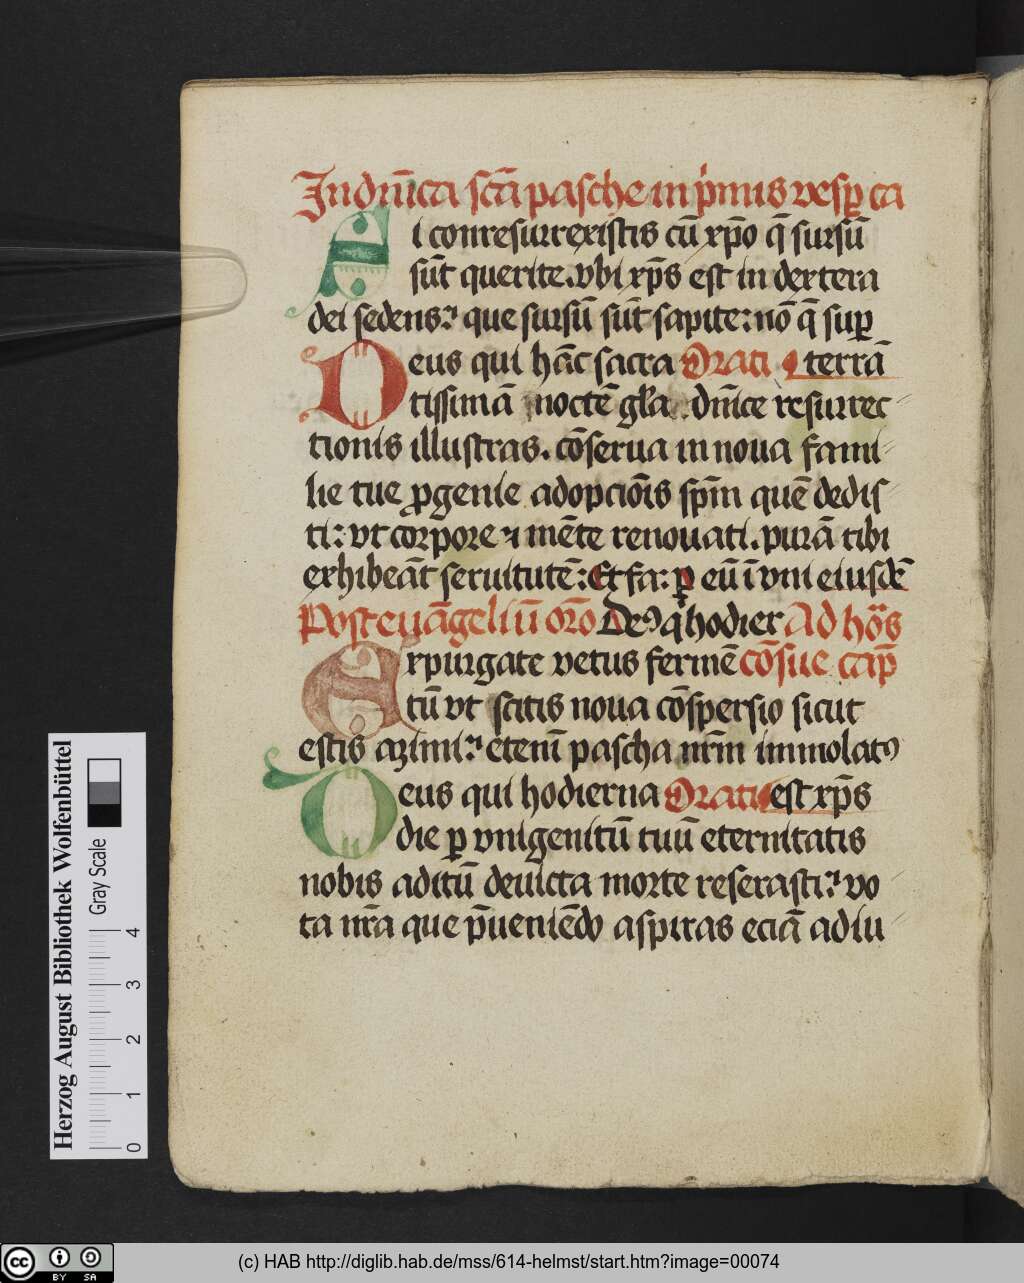 In dn̄ica sctā pasche in p̓mis vesꝑ ca
Si conresurrexistis cū xp̄o q̄ sursū
sūt querite. vbi xp̄s est in dextera
dei sedens: que sursū sūt sapite: nō q̄ suꝑ
Deus qui hāc sacra Orati terrā
tissimā noctē gl̓a dn̄ice resurrec
tionis illustras. cōserua in noua fami
lie tue ꝓgenie adopciōis sp̄m quē dedis
ti: vt corpore ⁊ mēte renouati. purā tibi
exhibeāt seruitutē: Et fa: ꝑ eū ī vni eiusdē
Post euāgeliū orō Deꝰ q̓ hodier Ad hōs
Expurgate vetus fermē cōsue cap̄
tū vt scitis noua cōspersio sicut
estis azimi: eteni pascha nrm̄ immolatꝰ
Deus qui hodierna Orati est xp̄s
die ꝑ vnigenitū tuū eternitatis
nobis aditū deuicta morte reserasti: vo
ta nr̄a que p̄ueniēdo aspiras eciā adiu
Herzog August Bibliothek Wolfenbüttel
Gray Scale
0 1 2 3 4
cc BY SA
(c) HAB http://diglib.hab.de/mss/614-helmst/start.htm?image=00074